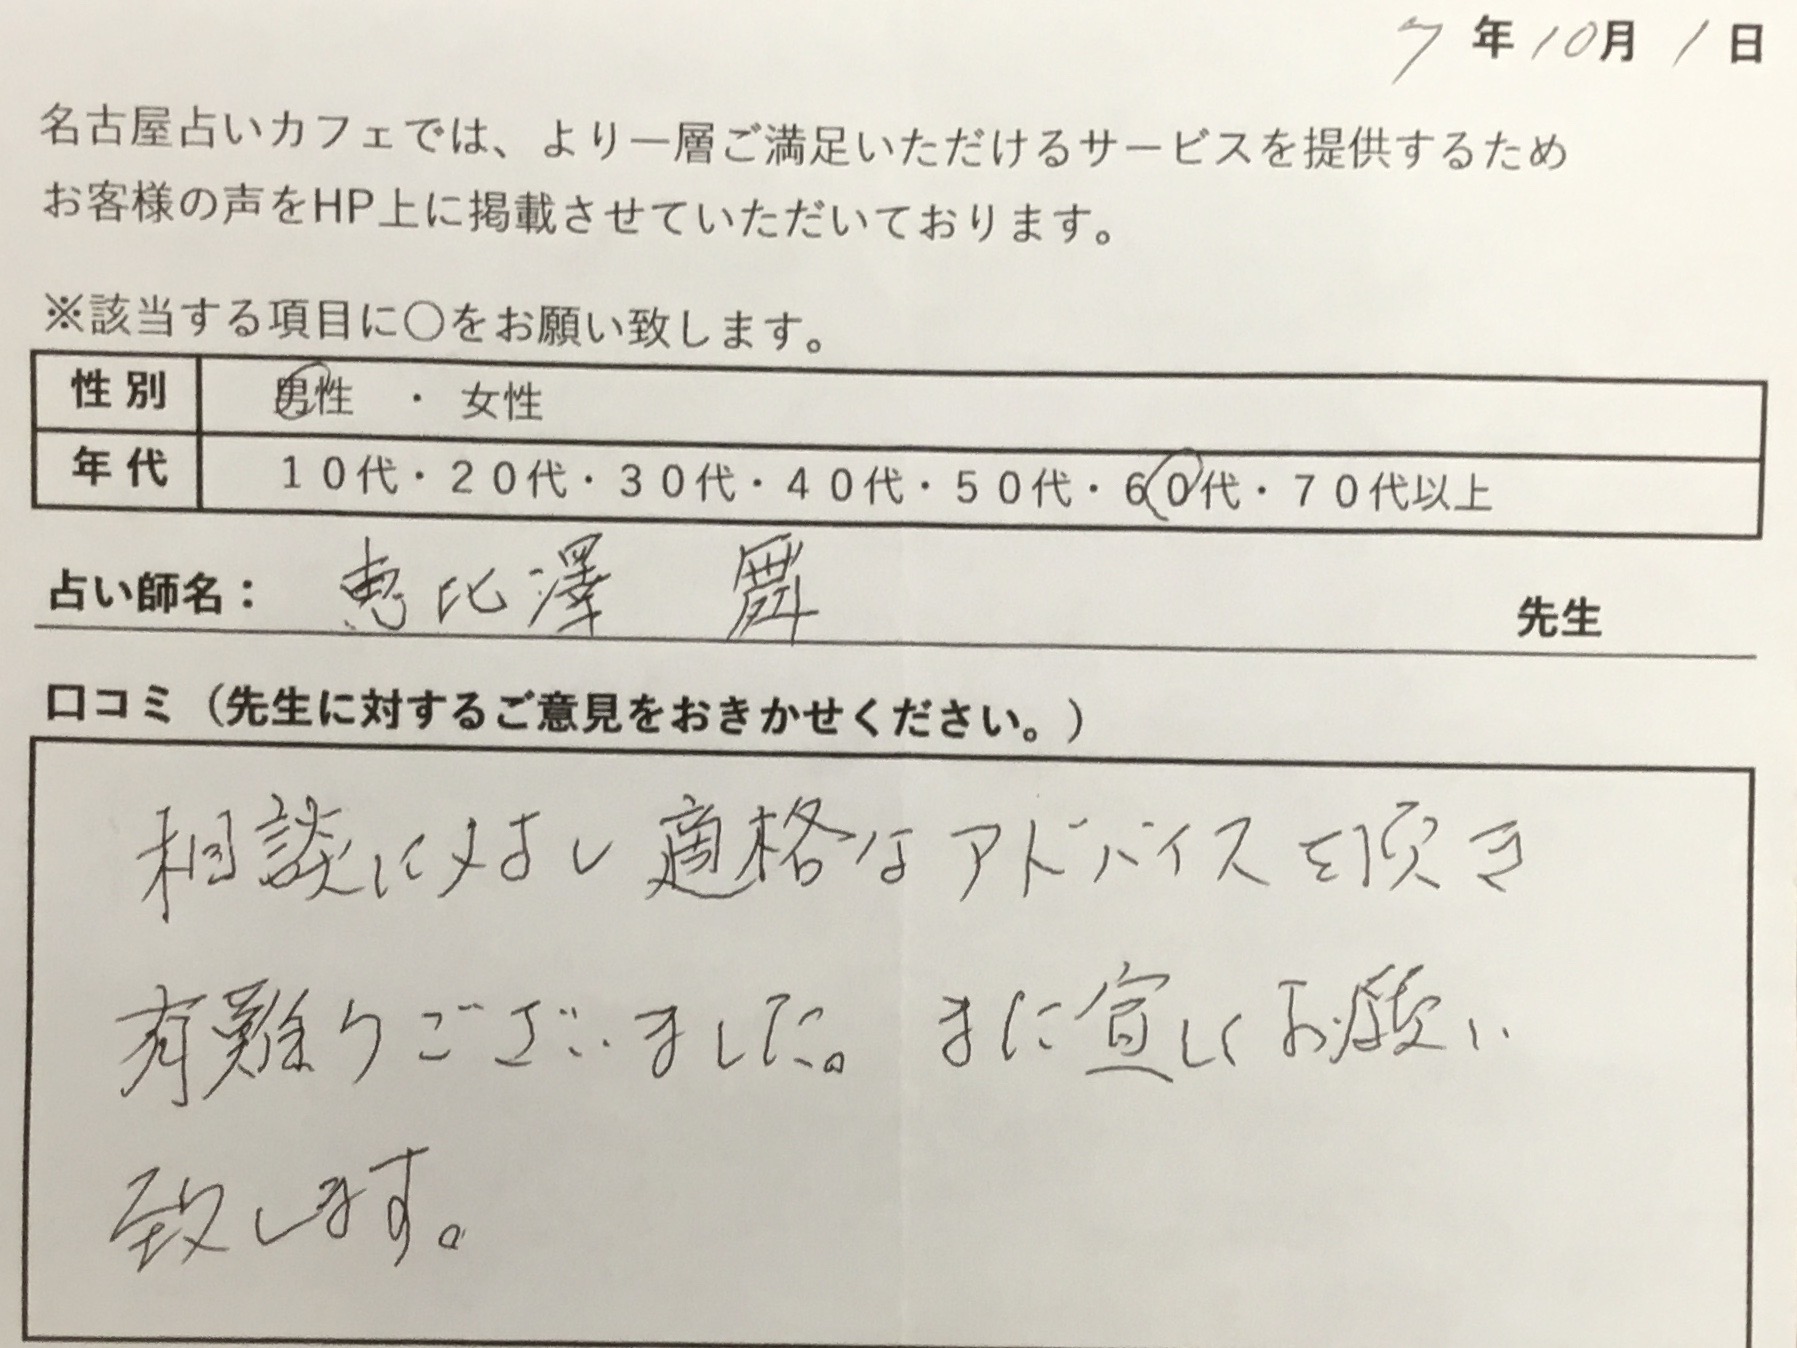 7年10月1日
名古屋占いカフェでは、より一層ご満足いただけるサービスを提供するため
お客様の声をHP上に掲載させていただいております。
※該当する項目に○をお願い致します。
性別 男性 ・ 女性
年代 10代・20代・30代・40代・50代・60代・70代以上
占い師名： 恵比澤 舞 先生
口コミ（先生に対するご意見をおきかせください。）
相談に対し適格なアドバイスを頂き
有難うございました。また宜しくお願い
致します。